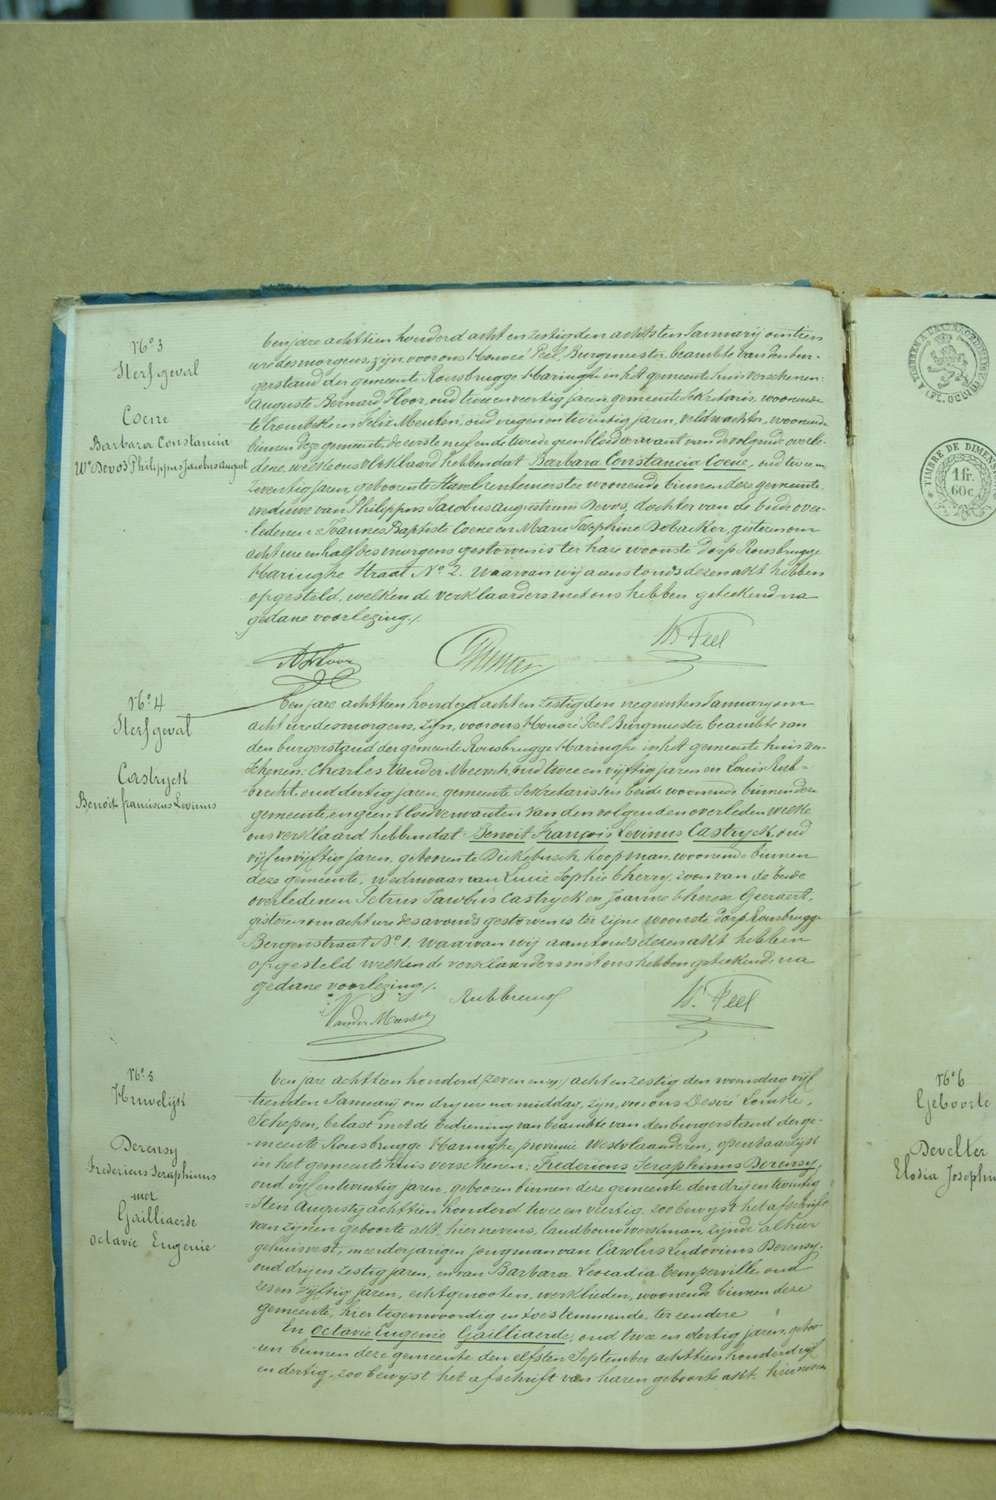 No. 3
Sterfgeval
Coene
Barbara Constancia
We Devos Philippus Jacobus august
Ten jare achttien honderd acht en zestig den achtsten Januarij om tien
ure des morgens zijn, voor ons Honoré Peel, Burgmeester beambte van den bur-
gerstand der gemeente Rousbrugge Haringhe in het gemeente huis verschenen:
Auguste Bernard Floor, oud twee en veertig jaren, gemeente Sekretaris, woonende
te Crombeke en Felix oud negen en twintig jaren, veldwachter, woonende
binnen deze gemeente de eerste neef en de tweede geen bloedverwant van de volgende overle-
dene, welke ons verklaard hebben dat Barbara Constancia Coene, oud twee en
zeventig jaren, geboren te woonende binnen deze gemeente
weduwe van Philippus Jacobus Augustinus Devos, dochter van de beide over-
ledenen Joannes Baptiste Coene en Marie Josephine Gisteren om
acht ure en half des morgens gestorven is ter hare woonste dorp Rousbrugge
Haringhe Straat No. 2. Waarvan wij aanstonds dezen akt hebben
opgesteld, welken de verklaarders met ons hebben geteekend na
gedane voorlezing.
A. Floor
H. Peel
No. 4
Sterfgeval
Castryck
Benoit franciscus Levinus
Ten jare achttien honderd acht en zestig den negensten Januarij om
acht ure des morgens, zijn, voor ons Honoré Peel Burgmeester beambte van
den burgerstand der gemeente Rousbrugge Haringhe in het gemeente huis ver-
schenen: Charles Vander Meersch, oud twee en vijftig jaren en Louis Rub-
brecht, oud dertig jaren, gemeente Sekretaris en beide woonende binnen deze
gemeente, en geen bloedverwanten van den volgenden overleden welke
ons verklaard hebben dat Benoit François Levinus Castryck, oud
vijf en vijftig jaren, geboren te Dickebusch, koopman, woonende binnen
deze gemeente, weduwaar van Lucie Sophie Cherry, zoon van de beide
overledenen Petrus Jacobus Castryck en Joanne Therese Geeraert,
gisteren om acht ure des avonds gestorven is ter zijne woonste dorp Rousbrugge
Bergenstraat No. 1. Waarvan wij aanstonds dezen akt hebben
opgesteld welken de verklaarders met ons hebben geteekend, na
gedane voorlezing.
Vander Meersch
Rubbrecht
H. Peel
No. 5
Huwelijk
Derensy
Fredericus Seraphinus
met
Gailliaerde
octavie Eugenie
Ten jare achttien honderd acht en zestig den woensdag vijf
tienden Januarij om drij ure na middag, zijn, voor ons Desiré
Schepen, belast met de bediening van beambte van den burgerstand der ge-
meente Rousbrugge Haringhe, provincie Westvlaanderen, openbaarlijk
in het gemeente huis verschenen: Fredericus Seraphinus Derensy,
oud vijf en twintig jaren, geboren binnen deze gemeente den drij en twintig
sten Augusty achttien honderd twee en veertig, zoo bewijst het afschrift
van zijnen geboorte akt hiernevens, landbouwwerkman, zijnde alhier
gehuisvest, meerderjarigen jongman van Carolus Ludovicus Derensy,
oud drij en zestig jaren, en van Barbara Leocadia Temperville oud
zes en vijftig jaren, echtgenooten, werklieden, woonende binnen deze
gemeente, hier tegenwoordig en toestemmende, ter eendere
En Octavie Eugenie Gailliaerde, oud twee en dertig jaren, gebo-
ren binnen deze gemeente den elfsten September achttien honderd vijf
en dertig, zoo bewijst het afschrift van haren geboorte akt, hiernevens
TIMBRE DE DIMENS
1 fr.
60c.
No. 6
Geboorte
Develter
Elodia Josephin